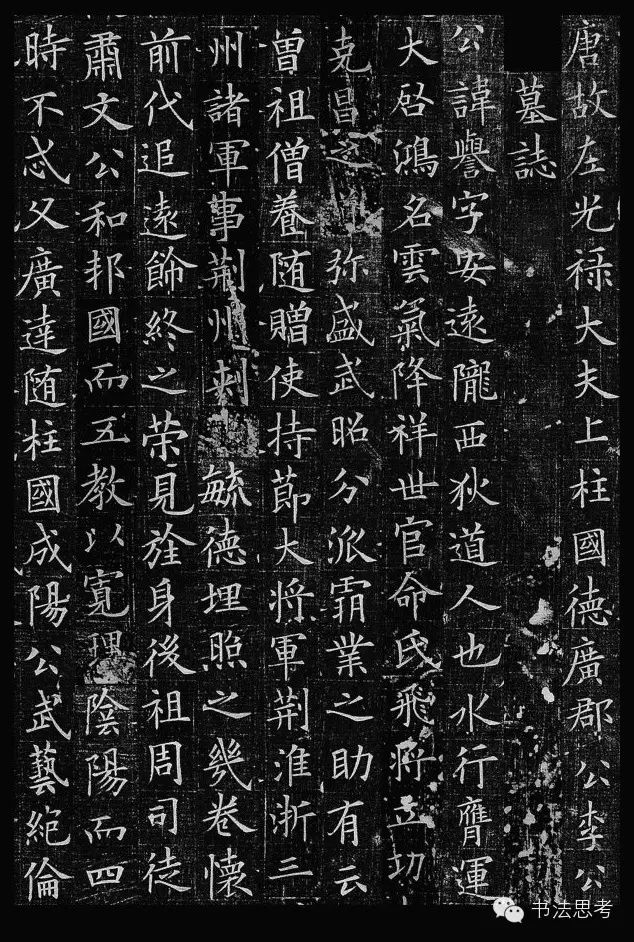 唐故左光禄大夫上柱國德廣郡公李公
墓誌
公諱譽字安遠隴西狄道人也水行膺運
大啓鴻名雲氣降祥世官命氏飛将立功
克昌之弥盛武昭分派霸業之助有云
曽祖僧養随贈使持莭大将軍荆淮浙三
州諸軍事荆州刺毓德埋照之幾卷懷
前代追遠飾終之荣見旌身後祖周司徒
肅文公和邦國而五教以寛理陰陽而四
時不忒父廣達随柱國成陽公武藝絶倫
书法思考